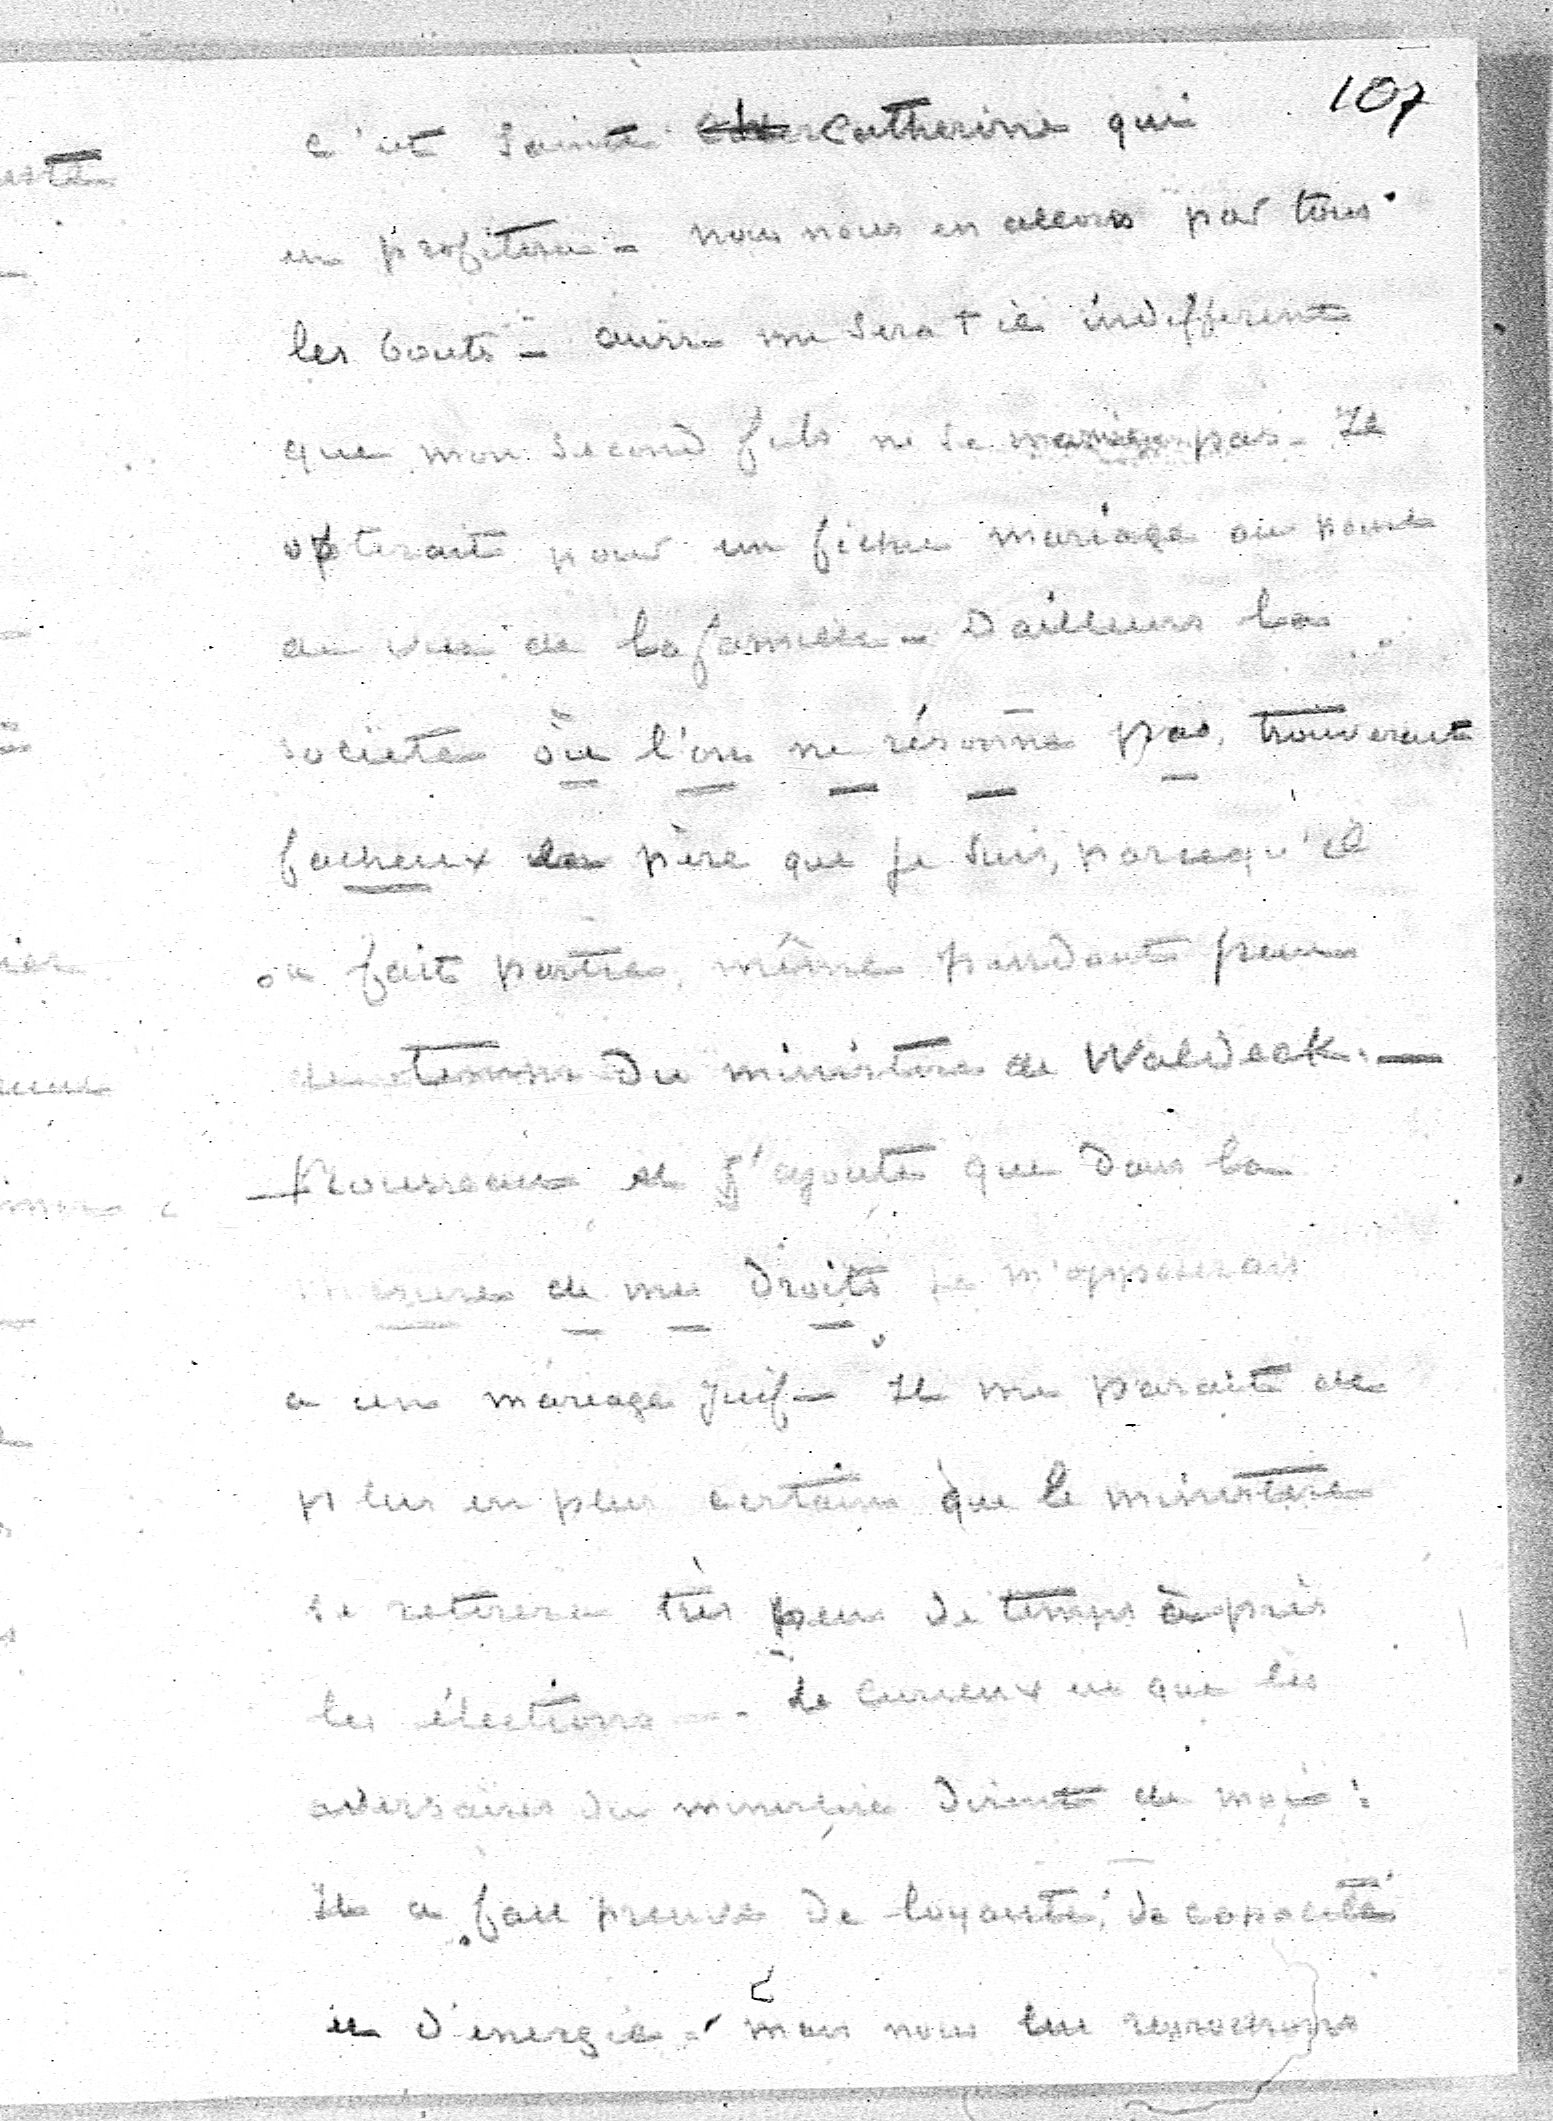 107
c'est Sainte Catherine qui
en profitera - nous nous en allons par tous
les bouts - aussi me sera t il indifferent
que mon second fils ne se marie pas - Il
opterait pour un fichu mariage au point
de vue de la famille - D'ailleurs la
société où l'on ne résonne pas, trouverait
facheux le père que je suis, parcequ'il
a fait partie, même pendant peu
de temps du ministère de Waldeck. -
- Rousseau et J'ajoute que dans la
mesure de mes droits je m'opposerais
a un mariage juif - Il me parait de
plus en plus certain que le ministère
se retirera très peu de temps après
les élections - Le curieux est que les
adversaires du ministère disent de moi :
Il a fait preuve de loyauté, de capacité
et d'energie - mais nous lui reprochons